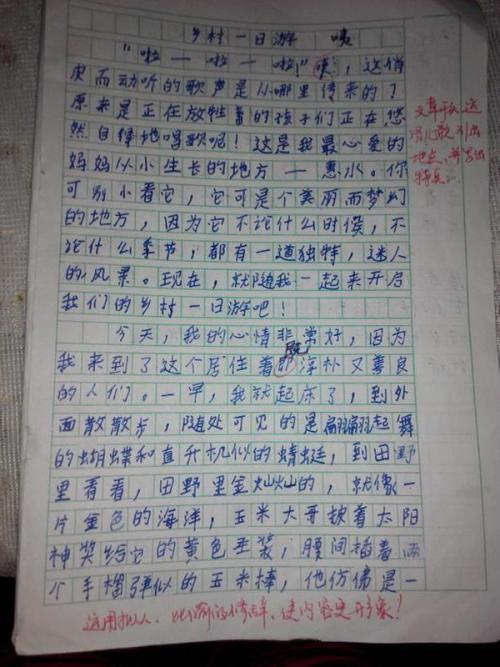 乡村一日游
"啦一啦一啦!"咦,这俏
皮而动听的歌声是从哪里传来的?
原来是正在放牲着的孩子们正在悠
然自得地唱歌呢!这是我最心爱的
妈妈从小生长的地方—惠水。你
可别小看它,它可是个美丽而梦幻
的地方,因为它不论什么时候,不
论什么季节,都有一道独特,迷人
的风景。现在,就随我一起来开启
我们的乡村一日游吧!
今天,我的心情非常好,因为
我来到了这个居住着既淳朴又善良
的人们。一早,我就起床了,到外
面散散步,随处可见的是翩翩起舞
的蝴蝶和直升机似的蜻蜓,到田野
里看看,田野里金灿灿的,就像一
片金色的海洋,玉米大哥披着太阳
神奖给它的黄色圣装,腰间插着两
个手榴弹似的玉米棒,他仿佛是一
文章开头
地点,并写出
特点。
运用拟人、比喻的修辞,使内容更形象!